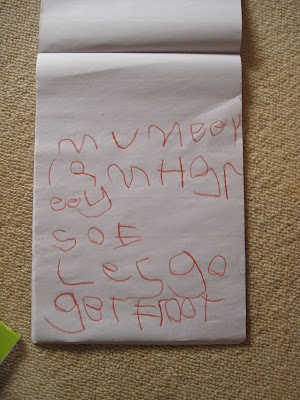 mumeey
I am Hgr
eey
SOE
Lesgo
get Foot